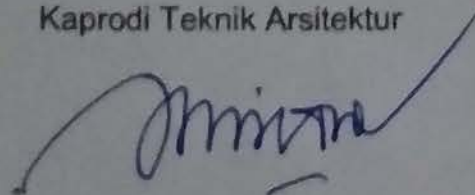 Kaprodi Teknik Arsitektur